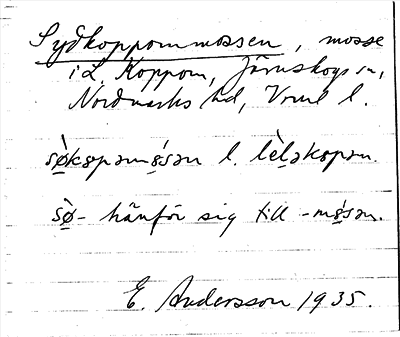 Sydkoppommossen, mosse
i L. Koppom, Järnskogs sn,
Nordmarks hd, Vrml l.
sø̀kɷpomɷ́sən l. lèləkɷpom.
sø̀- hänför sig till -mɷ́sən.
E. Andersson 1935.